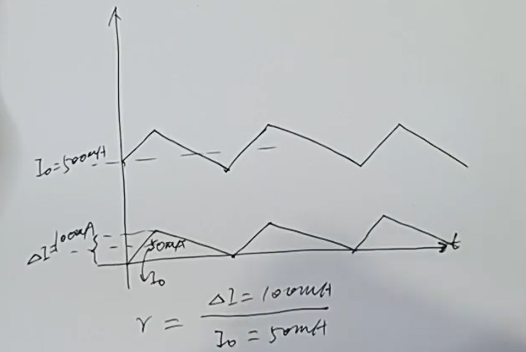 I₀=500mA
ΔI=100mA
50mA
I₀
t
r = ΔI=100mA / I₀=50mA